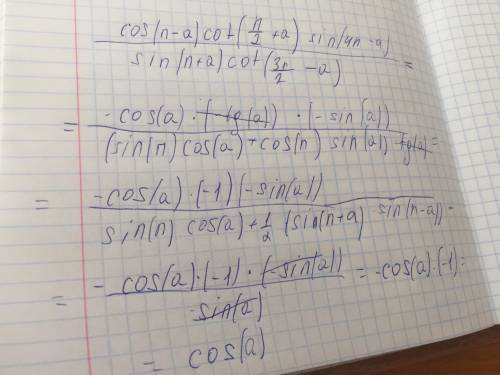 cos(n-a) cot(n/2 +a) sin(4n-a)
sin(n+a) cot(3n/2 -a) =
= -cos(a)·(-tg(a))·(-sin(a))
(sin(n) cos(a)+cos(n) sin(a)) tg(a) =
= -cos(a)·(-1)(-sin(a))
sin(n) cos(a)+1/2 (sin(n+a) sin(n-a)) -
= - cos(a)·(-1)·(-sin(a)) = -cos(a)·(-1)=
-sin(a)
= cos(a)